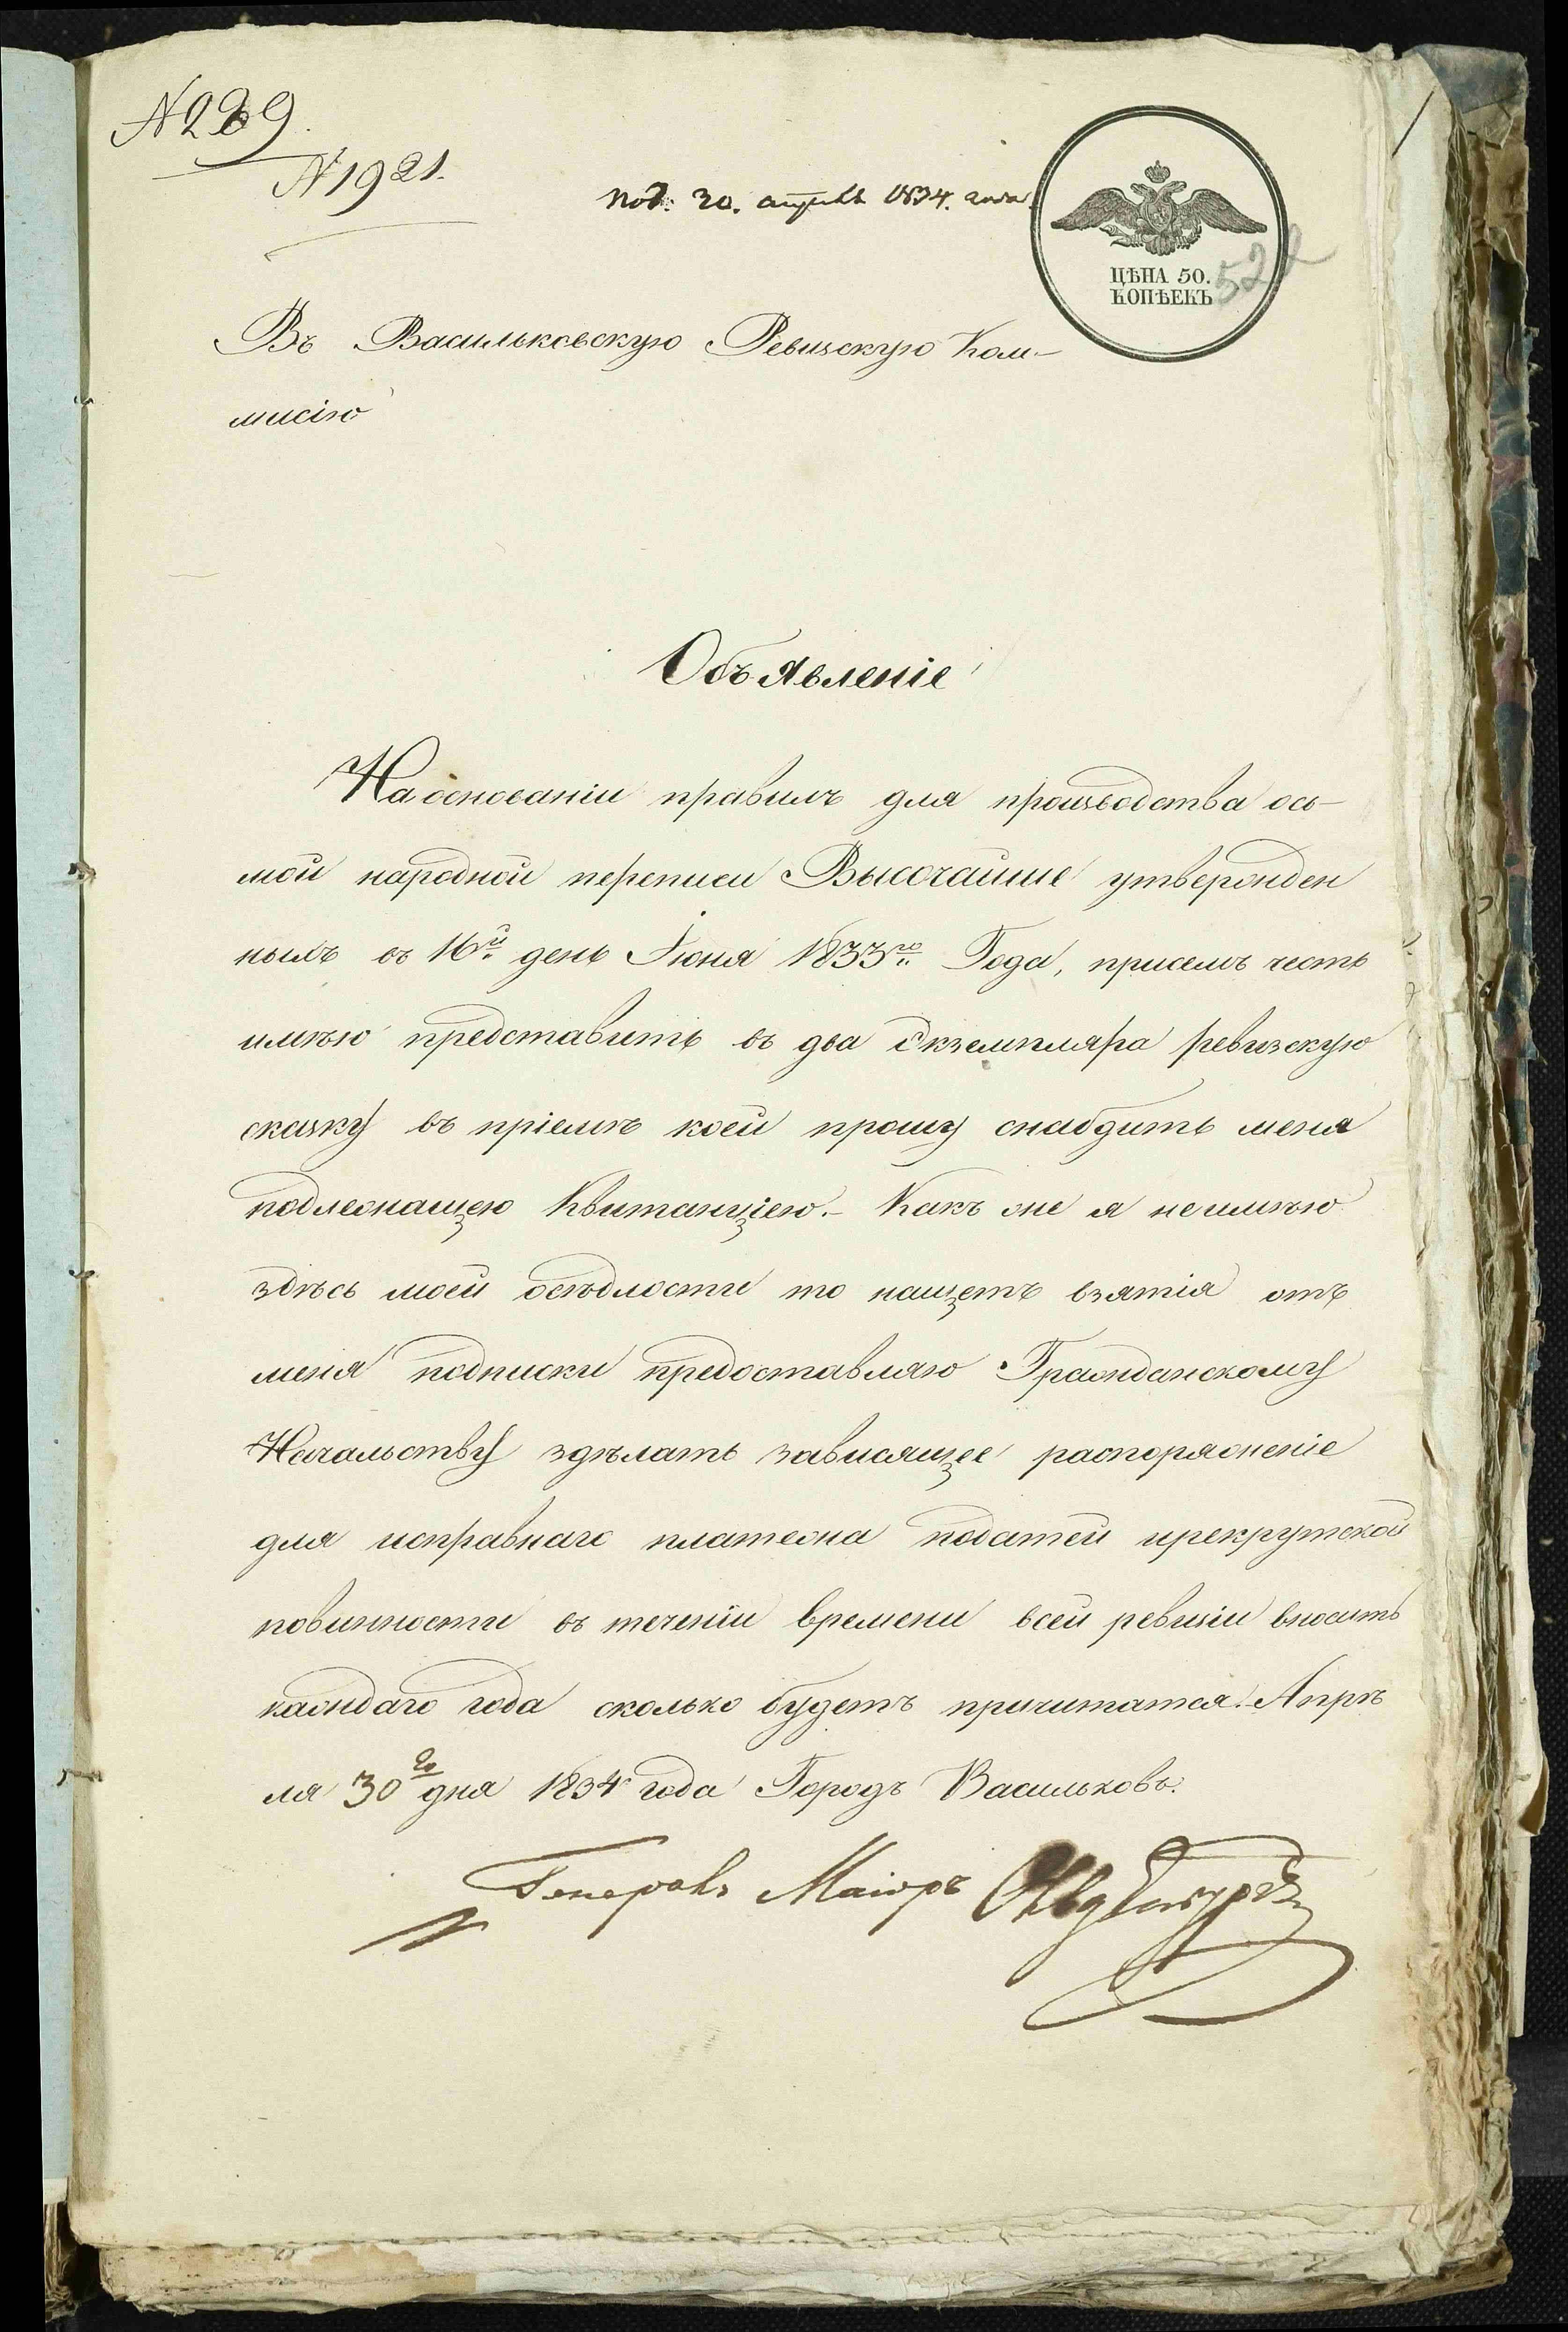 N 289.
N 1921.
под: 30. апреля 1834. года.
ЦѢНА 50.
КОПѢЕКЪ
522
Въ Васильковскую Ревизскую Ком-
мисію
Объявленіе
На основаніи правилъ для производства ось-
мой народной переписи Высочайше утвержден
нымъ въ 16й день Іюня 1833го Года, присемъ честь
имѣю представить въ два Экземпляра ревизскую
сказку въ пріемѣ коей прошу снабдить меня
подлежащею Квитанціею.- Какъ же я неимѣю
здѣсь моей осѣдлости то нащетъ взятія отъ
меня подписки предоставляю Гражданскому
Начальству здѣлать зависящее распоряженіе
для исправнаго платежа податей ирекрутской
повинности въ теченіи времени всей ревизіи вносить
каждаго года сколько будетъ причитатся. Апрѣ
ля 30го дня 1834 года Городъ Васильковъ.
Генералъ Маіоръ